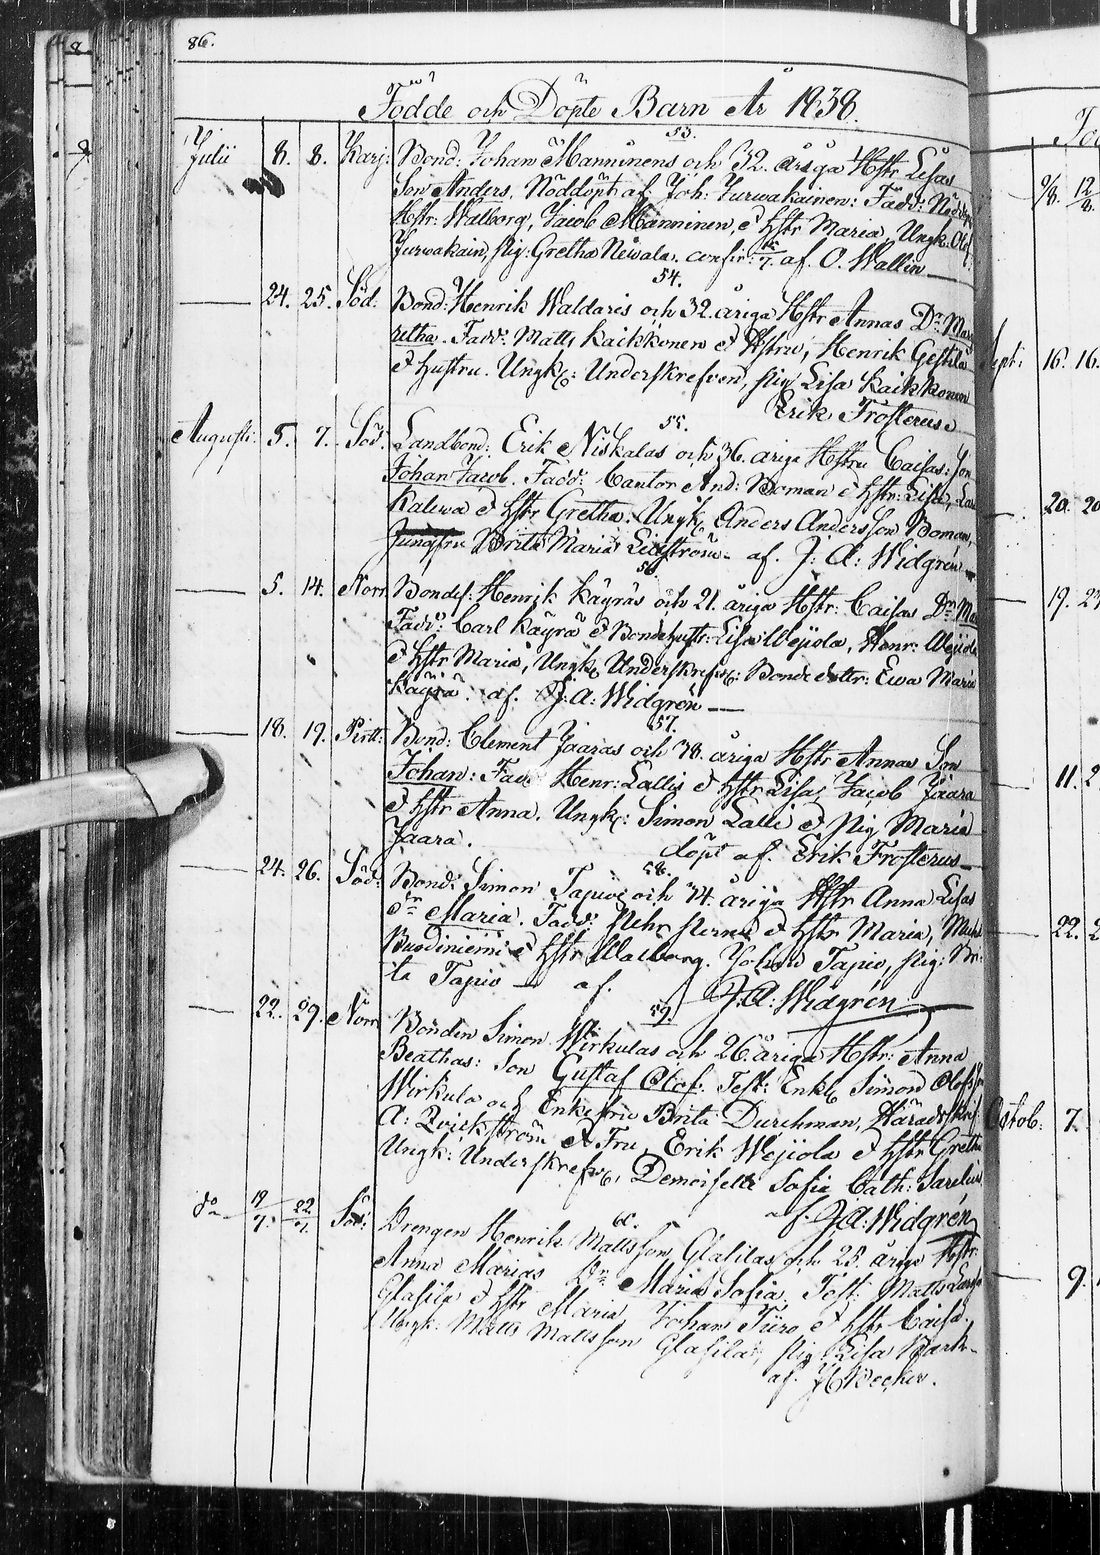 86.
Födde och Döpte Barn År 1838.
53.
Julii 8. 8. Karj: Bond: Johan Manninens och 32. åriga Hstr Lisas
Son Anders. Nöddöpt af Joh: Jurwakainen: Fadd:
Hstr: Walborg, Jacob Manninen, & hstr Maria, Ungk: Olof
Jurwakain, pig: Gretha Newala. confir: af O. Wallin
54.
24. 25. Söd. Bond: Henrik Waldaris och 32. åriga Hstr Annas Dr Mar
retha. Fadd: Matts Kaikkonen & Hstru, Henrik Gestilä
& hustru. Ungk: Underskrefven, pig Lisa Kaikkonen
Erik Frosterus
55.
Augusti: 5. 7. Söd. Landbond: Erik Niskalas och 36. åriga Hstru Caisas: Son
Johan Jacob. Fadd: Cantor And: Boman & hstr: Lisa,
Kalewa & hstr Gretha. Ungk Anders Andersson Boman,
Jungfru Brita Maria Lidström af. J: A: Widgrén
56.
5. 14. Norr. Bondes. Henrik Käyräs och 21. åriga Hstr: Caisas Dr
Fadd: Carl Käyrä & Bondehustr: Lisa Wejiola, Henr: Wejiola
& hstr Maria, Ungk Underskrefv: Bondedottr: Ewa Maria
Käyrä. af. J: A: Widgrén
57.
18. 19. Pirtt: Bond: Clement Jaaras och 38. åriga Hstr Annas Son
Johan: Fadd: Henr: Lallis & hstr Lisa, Jacob Jaara
& hstr Anna. Ungk: Simon Lalli & pig Maria
Jaara. döpt af. Erik Frosterus
58.
24. 26. Söd: Bond: Simon Tapios och 44. åriga Hstr Anna Lisas
dr Maria. Fadd: Pehr & hstr Maria,
& hstr Walborg. Johan Tapio, pig: Bri-
ta Tapio af. J: A: Widgrén
59.
22. 29. Norr Bonden Simon Wirkulas och 26. åriga Hstr: Anna
Beathas: Son Gustaf Olof. Test: Enkl Simon Olofs
Wirkula och Enkefru Brita Durchman, Häradsskrif
A: Qvickström & Fru, Erik Wejiola & hstr Gretha
Ungk: Underskrefv, Demoiselle Sofia Cath:
af. J: A: Widgrén
60.
do 19/7. 22/7. Söd: Drengen Henrik Mattsson Glasilas och 25. åriga Hstr:
Anna Marias Dr Maria Sofia. Test: Matts
Glasila & hstr Maria Johan Tiiro & hstr Caisa.
Ungk: Matts Mattsson Glasila, pig Lisa
af. Becker.
Sept: 16. 16.
20. 20
19. 23
11. 2
22. 2
Octob: 7.
9.